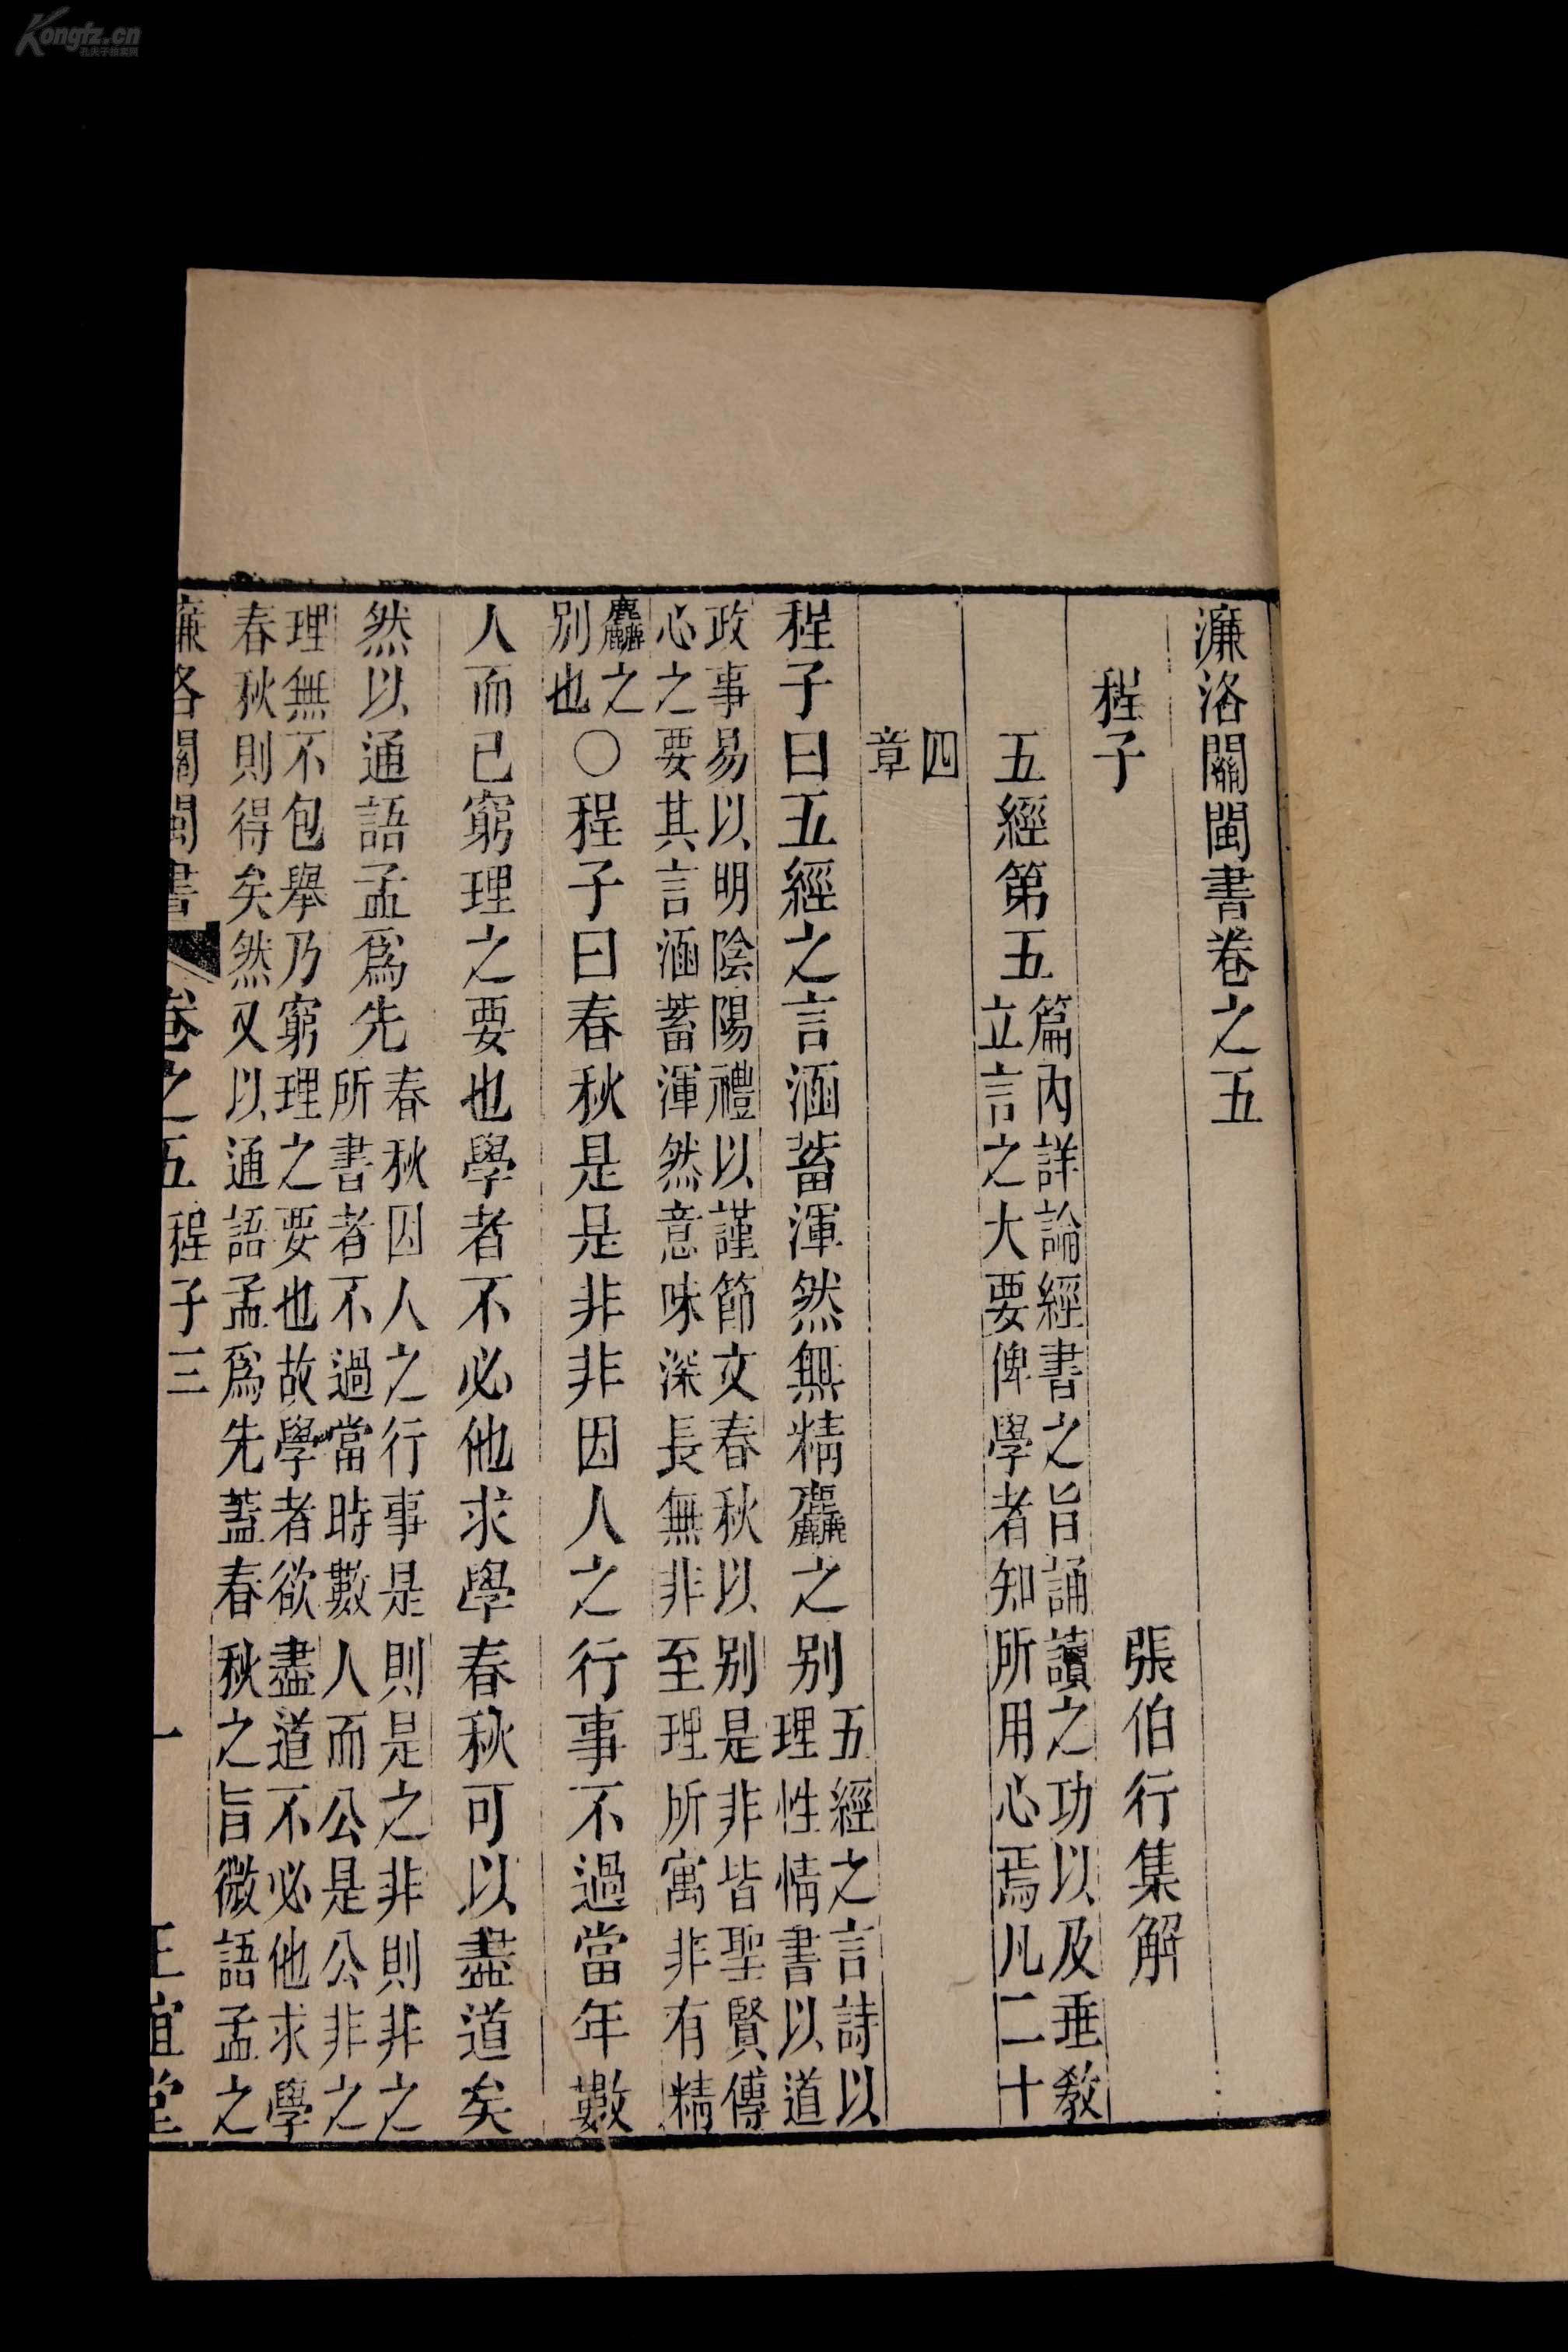 Kongfz.cn
濂洛關閩書卷之五
程子　張伯行集解
五經第五
篇內詳論經書之旨誦讀之功以及垂教
立言之大要俾學者知所用心焉凡二十
四
章
程子曰五經之言涵蓄渾然無精麤之別
五經之言詩以
理性情書以道
政事易以明陰陽禮以謹節文春秋以別是非皆聖賢傳
心之要其言涵蓄渾然意味深長無非至理所寓非有精
麤之
別也
○程子曰春秋是是非非因人之行事不過當年數
人而已窮理之要也學者不必他求學春秋可以盡道矣
然以通語孟爲先
春秋因人之行事是則是之非則非之
所書者不過當時數人而公是公非之
理無不包舉乃窮理之要也故學者欲盡道不必他求學
春秋則得矣然又以通語孟爲先蓋春秋之旨微語孟之
濂洛關閩書　卷之五　程子三　一　正誼堂